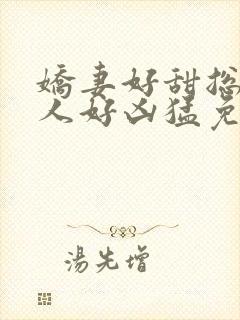 嬌妻好甜总
人好凶猛免
湯先增